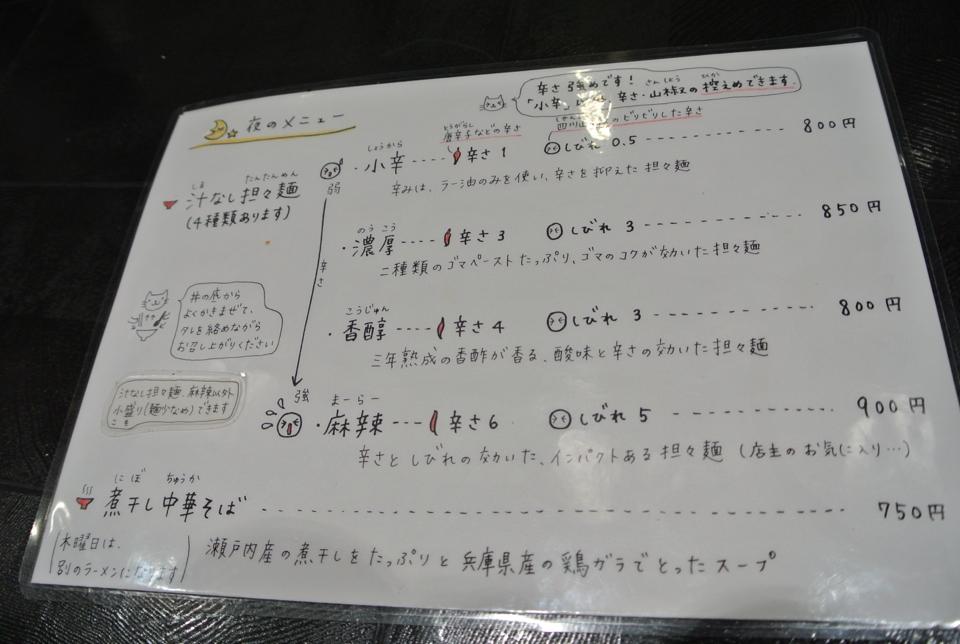 夜のメニュー
辛さ強めです!
さんしょう ひか
「小辛」 辛さ・山椒の控えめできます。
とうがらし
唐辛子などの辛さ
四川山 のビリビリした辛さ
しょうから
・小辛 ---- 辛さ 1 しびれ 0.5 ---- 800円
弱
辛みは、ラー油のみを使い、辛さを抑えた 担々麺
しる たんたんめん
汁なし担々麺
(4種類あります)
のうこう
・濃厚 ---- 辛さ 3 しびれ 3 ---- 850円
二種類のゴマペーストたっぷり、ゴマのコクが効いた担々麺
辛さ
丼の底から
よくかきまぜて、
タレを絡めながら
お召し上がりください
こうじゅん
・香醇 ---- 辛さ 4 しびれ 3 ---- 800円
三年熟成の香酢が香る、酸味と辛さの効いた担々麺
汁なし担々麺、麻辣以外
小盛り(麺少なめ)できます
こも
強
まーらー
・麻辣 ---- 辛さ 6 しびれ 5 ---- 900円
辛さとしびれの効いた、インパクトある担々麺 (店主のお気に入り…)
にぼ ちゅうか
煮干し中華そば ---- 750円
(木曜日は、
別のラーメンになります)
瀬戸内産の煮干しをたっぷりと兵庫県産の鶏ガラでとったスープ